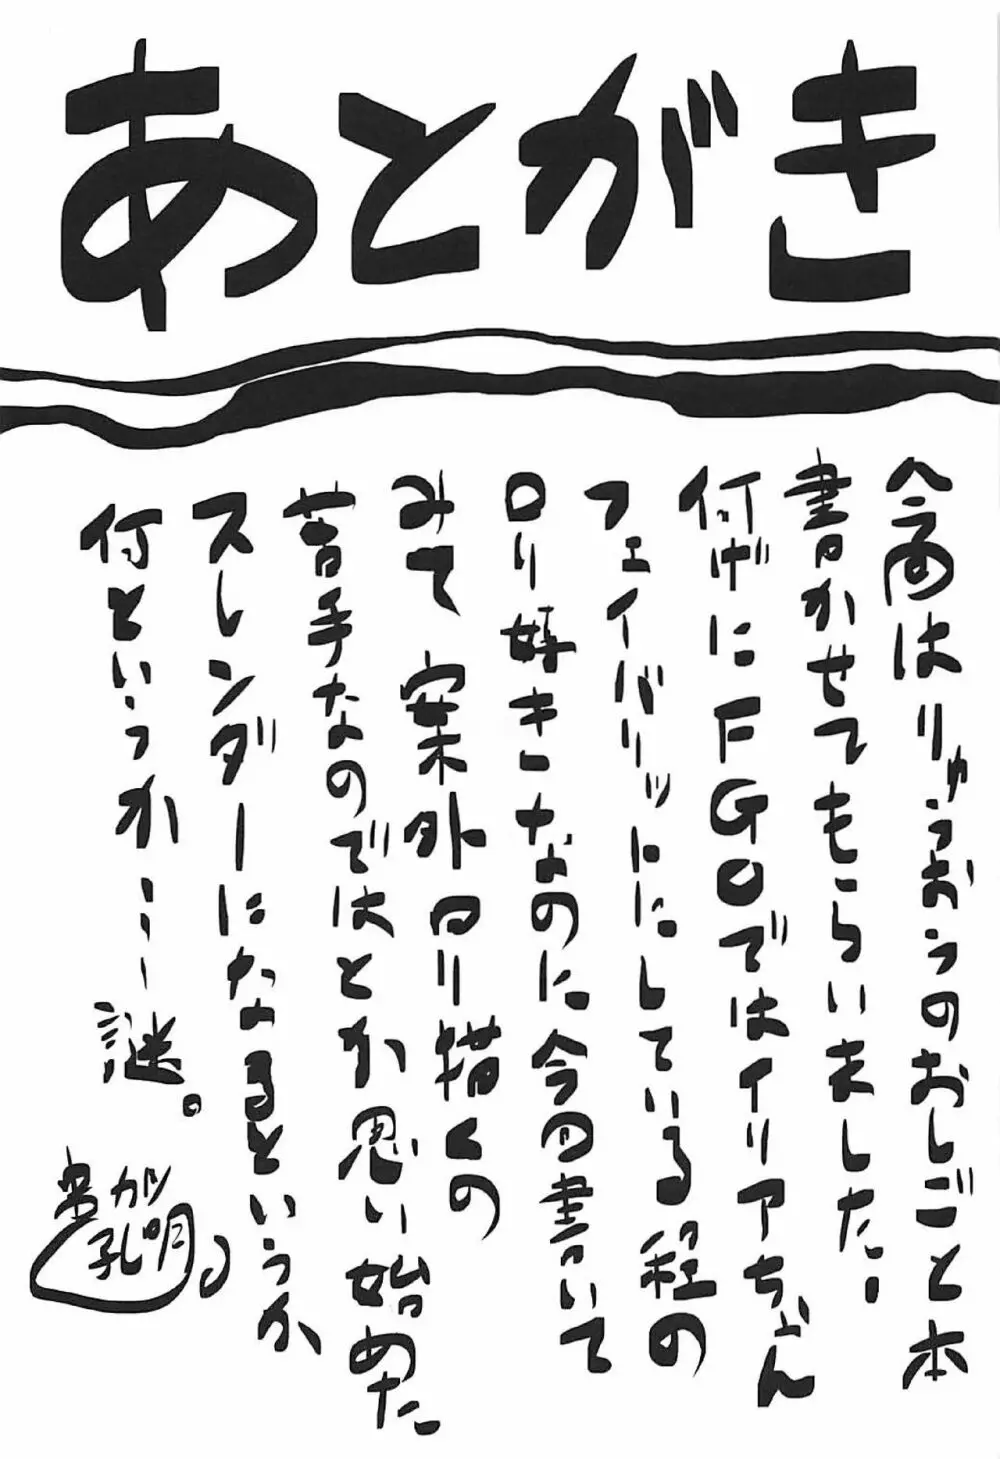 あとがき
今回はりゅうおうのおしごと本
書かせてもらいました!
何げにFGOではイリアちゃん
フェイバリットにしている程の
ロリ好きなのに今回書いて
みて案外ロリ描くの
苦手なのではとか思い始めた
スレンダーになるというか
何というか……謎。
カツ
孔明